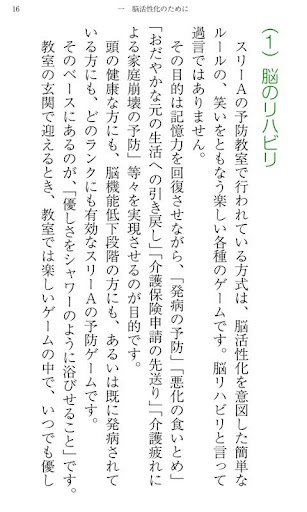 16
一　脳活性化のために
（1）　脳のリハビリ
スリーAの予防教室で行われている方式は、脳活性化を意図した簡単な
ルールの、笑いをともなう楽しい各種のゲームです。脳リハビリと言って
過言ではありません。
その目的は記憶力を回復させながら、「発病の予防」「悪化の食いとめ」
「おだやかな元の生活への引き戻し」「介護保険申請の先送り」「介護疲れに
よる家庭崩壊の予防」等々を実現させるのが目的です。
頭の健康な方にも、脳機能低下段階の方にも、あるいは既に発病されて
いる方にも、どのランクにも有効なスリーAの予防ゲームです。
そのベースにあるのが、「優しさをシャワーのように浴びせること」です。
教室の玄関で迎えるとき、教室では楽しいゲームの中で、いつでも優し